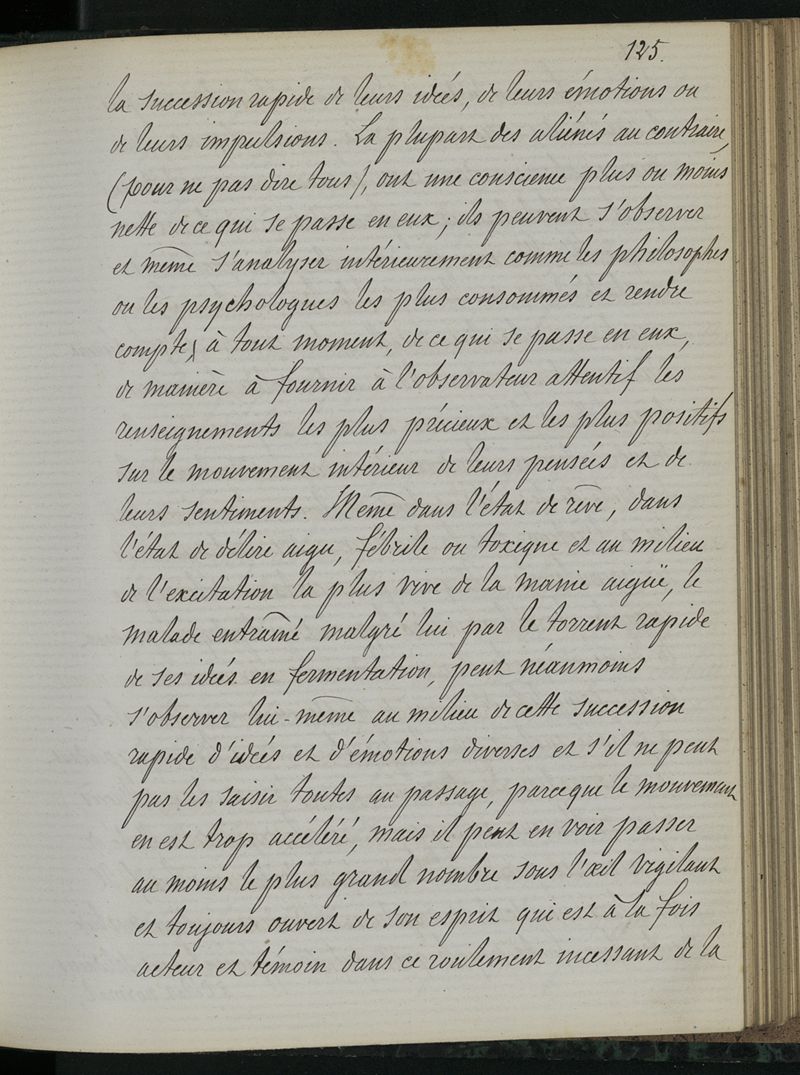 125.
la succession rapide de leurs idées, de leurs émotions ou
de leurs impulsions. La plupart des aliénés au contraire,
(pour ne pas dire tous), ont une conscience plus ou moins
nette de ce qui se passe en eux; ils peuvent s'observer
et même s'analyser intérieurement comme les philosophes
ou les psychologues les plus consommés et rendre
compte, à tout moment, de ce qui se passe en eux,
de manière à fournir à l'observateur attentif les
renseignements les plus précieux et les plus positifs
sur le mouvement intérieur de leurs pensées et de
leurs sentiments. Même dans l'état de rêve, dans
l'état de délire aigu, fébrile ou toxique et au milieu
de l'excitation la plus vive de la manie aigüe, le
malade entraîné malgré lui par le torrent rapide
de ses idées en fermentation, peut néanmoins
s'observer lui-même au milieu de cette succession
rapide d'idées et d'émotions diverses et s'il ne peut
pas les saisir toutes au passage, parceque le mouvement
en est trop accéléré, mais il peut en voir passer
au moins le plus grand nombre sous l'œil vigilant
et toujours ouvert de son esprit qui est à la fois
acteur et témoin dans ce roulement incessant de la